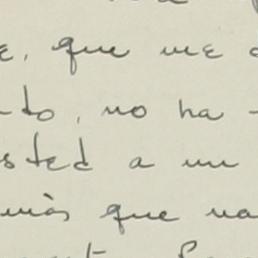 e, que me
to, no ha
sted a un
más que na